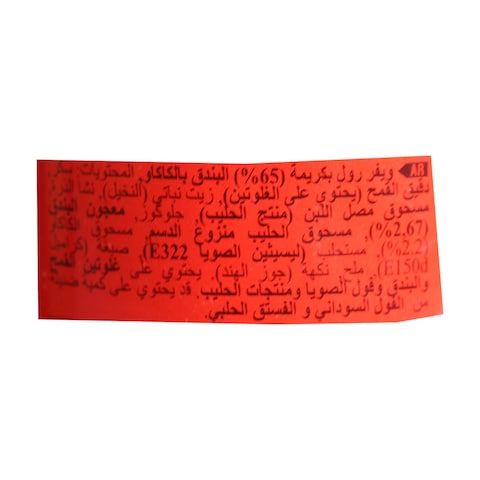 AR ويفر رول بكريمة (65%) البندق بالكاكاو. المحتويات: سكر
دقيق القمح (يحتوي على الغلوتين)، زيت نباتي (النخيل)، نشا الذرة
مسحوق مصل اللبن (منتج الحليب)، جلوكوز، معجون البندق
(2.67%)، مسحوق الحليب منزوع الدسم، مسحوق
(2.2%)، مستحلب (ليسيثين الصويا E322)، صبغة
(E150d)، ملح، نكهة (جوز الهند). يحتوي على غلوتين القمح
والبندق وفول الصويا ومنتجات الحليب. قد يحتوي على كمية ضئيلة
من الفول السوداني و الفستق الحلبي.